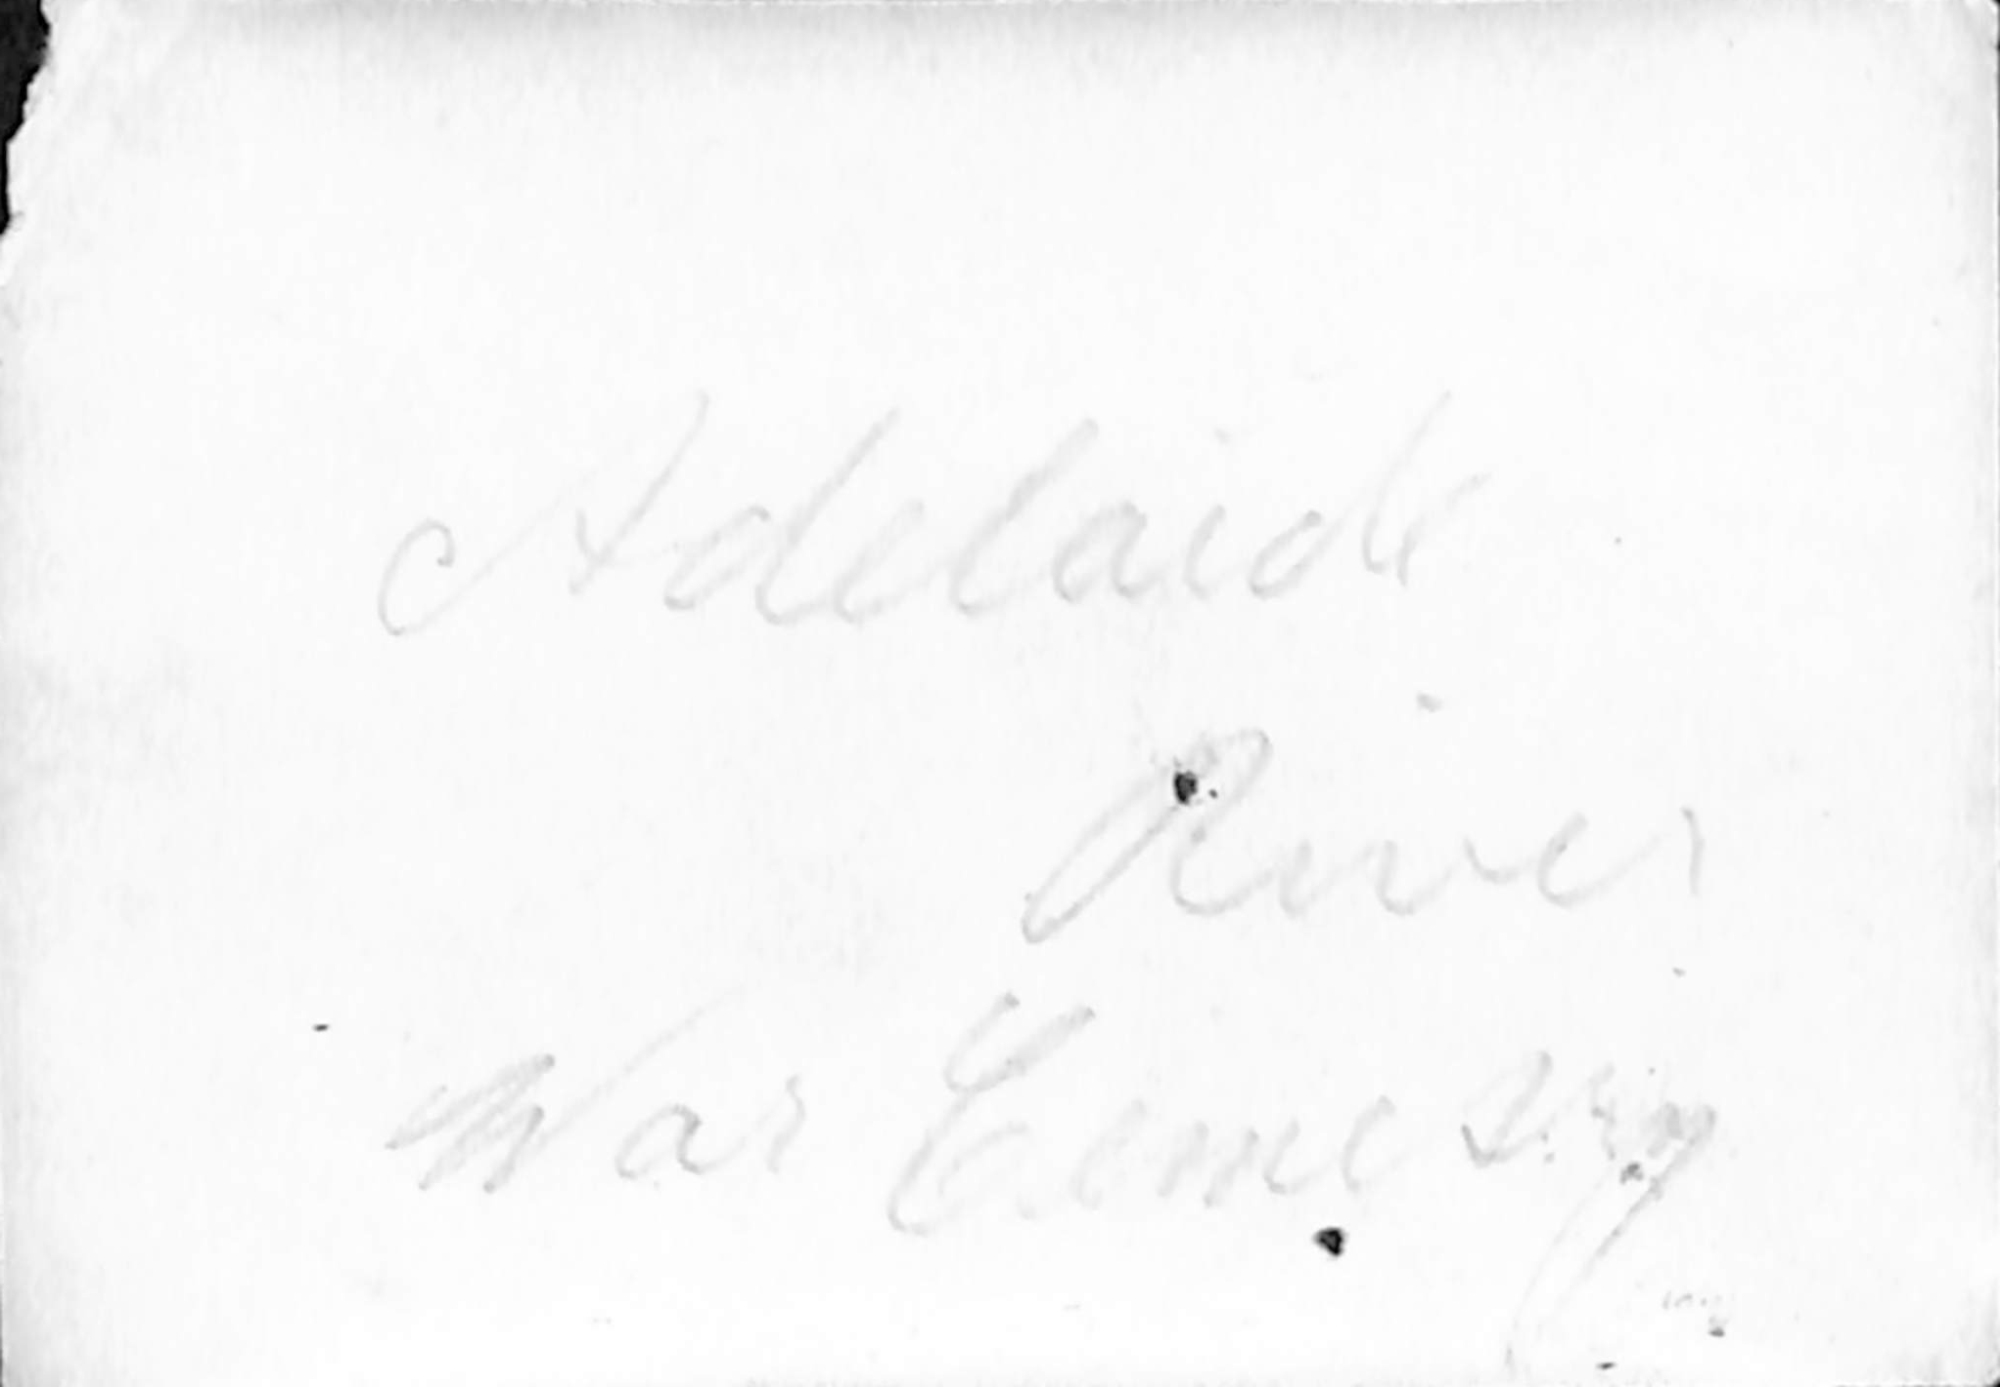 Adelaide
River
War Cemetery